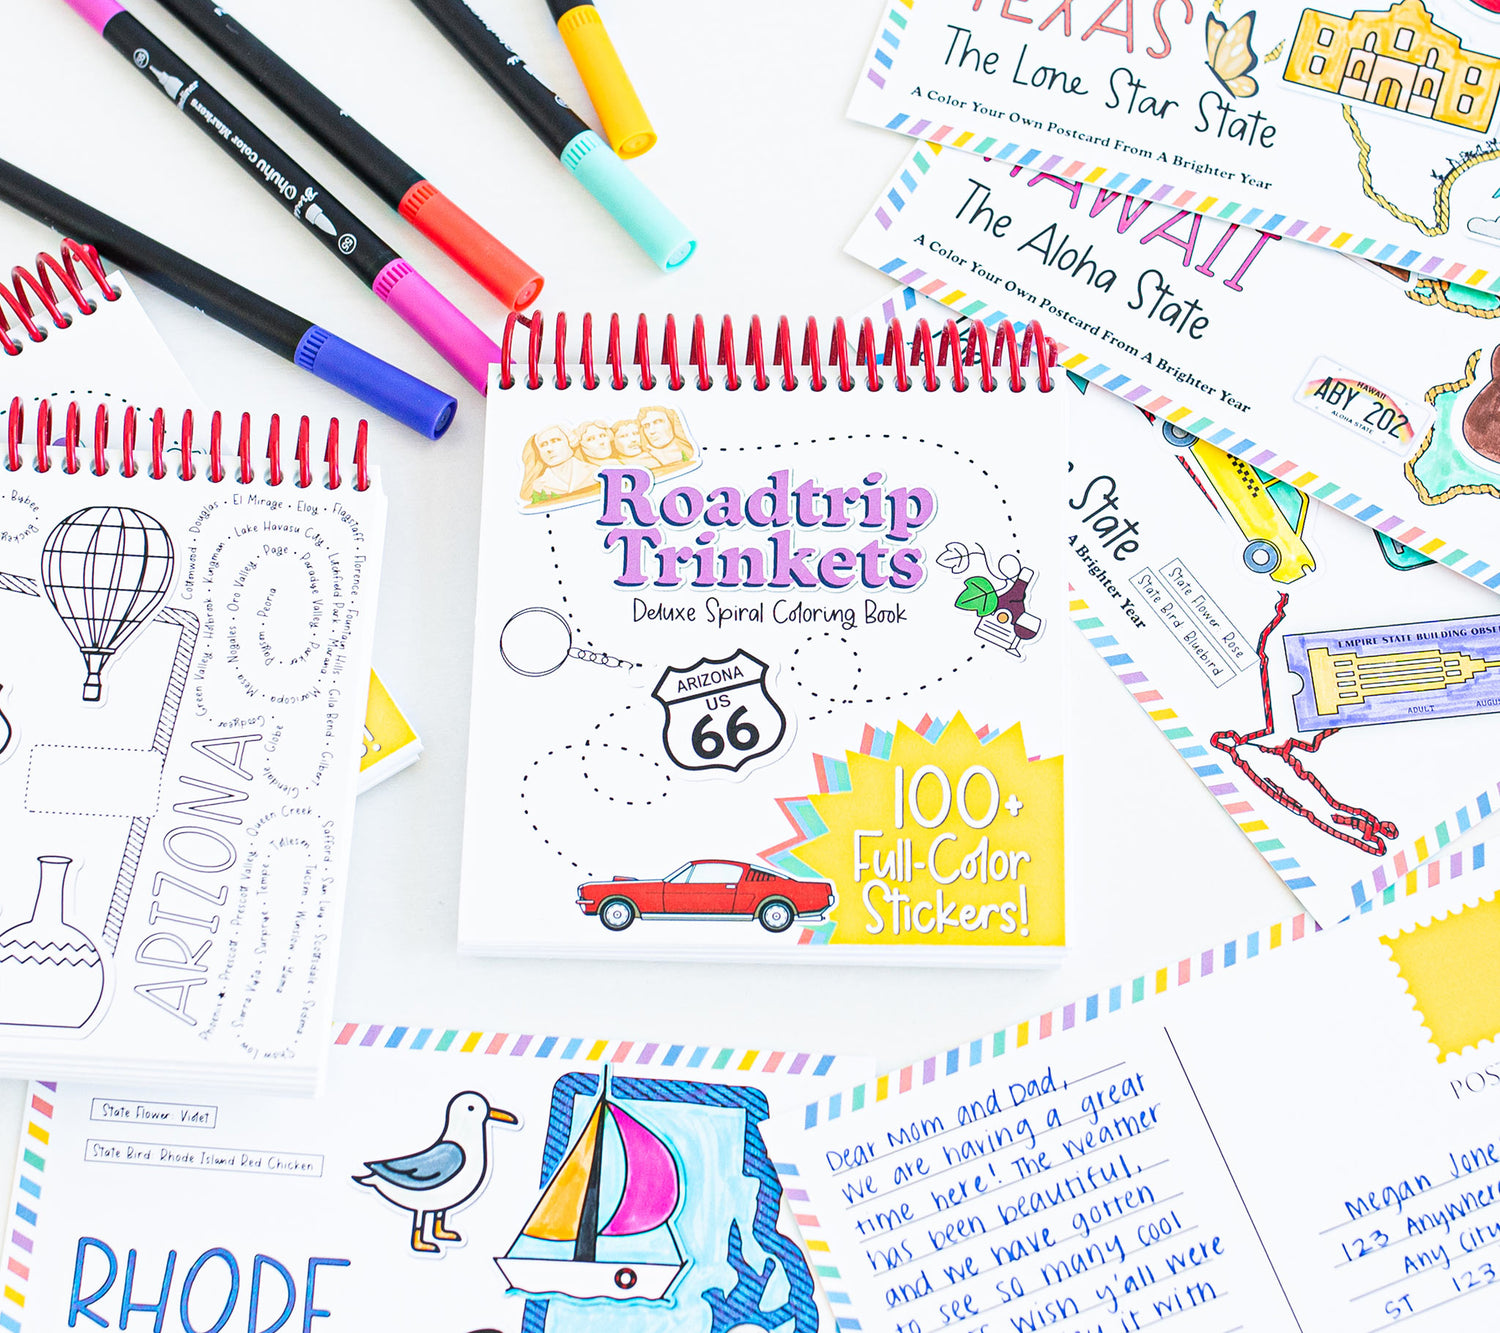 TEXAS
The Lone Star State
A Color Your Own Postcard From A Brighter Year
HAWAII
The Aloha State
A Color Your Own Postcard From A Brighter Year
HAWAII
ABY 202
ALOHA STATE
State
A Brighter Year
State Flower: Rose
State Bird: Bluebird
EMPIRE STATE BUILDING OBSE
ADULT
AUGUS
Ohuhu Color Markers
Ohuhu
Roadtrip
Trinkets
Deluxe Spiral Coloring Book
ARIZONA
US
66
100+
Full-Color
Stickers!
ARIZONA
Bybee
Cottonwood • Douglas • El Mirage • Eloy • Flagstaff • Florence • Fountain Hills • Gila Bend • Gilbert
Glendale • Globe • Goodyear • Green Valley • Holbrook • Kingman • Lake Havasu City • Litchfield Park
Maricopa • Mesa • Nogales • Oro Valley • Page • Paradise Valley • Parker
Payson • Peoria
Phoenix ★ • Prescott • Prescott Valley • Queen Creek
Safford • San Luis • Scottsdale • Sedona
Show Low • Sierra Vista • Surprise • Tempe • Tolleson
Tucson • Winslow • Yuma
State Flower: Violet
State Bird: Rhode Island Red Chicken
RHODE
Dear Mom and Dad,
We are having a great
time here! The weather
has been beautiful,
and we have gotten
to see so many cool
wish y'all were
it with
POS
Megan Jone
123 Anywhere
Any City
ST 123